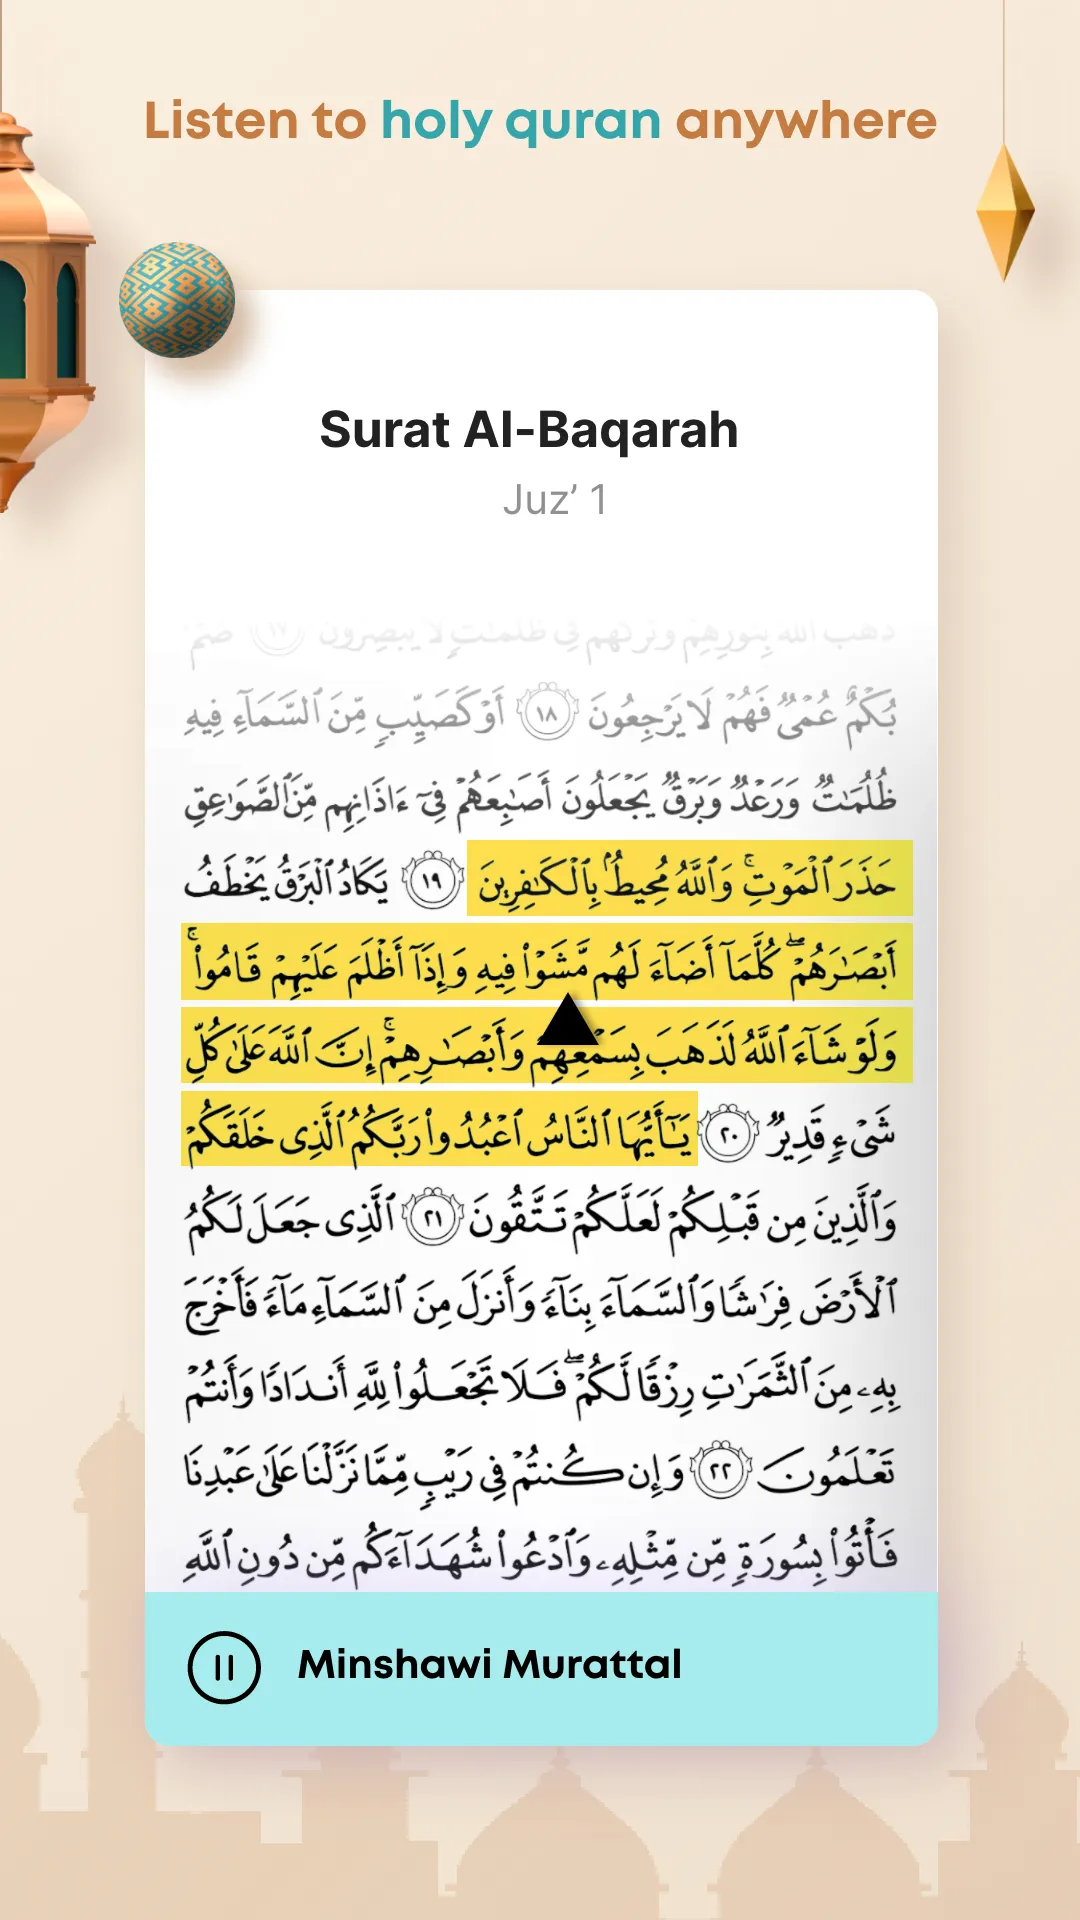 Listen to holy quran anywhere
Surat Al-Baqarah
Juz’ 1
ذَهَبَ ٱللَّهُ بِنُورِهِمْ وَتَرَكَهُمْ فِى ظُلُمَـٰتٍ لَّا يُبْصِرُونَ ١٧ صُمٌّۢ
بُكْمٌ عُمْىٌ فَهُمْ لَا يَرْجِعُونَ ١٨ أَوْ كَصَيِّبٍ مِّنَ ٱلسَّمَآءِ فِيهِ
ظُلُمَـٰتٌ وَرَعْدٌ وَبَرْقٌ يَجْعَلُونَ أَصَـٰبِعَهُمْ فِىٓ ءَاذَانِهِم مِّنَ ٱلصَّوَٰعِقِ
حَذَرَ ٱلْمَوْتِ ۚ وَٱللَّهُ مُحِيطٌۢ بِٱلْكَـٰفِرِينَ ١٩ يَكَادُ ٱلْبَرْقُ يَخْطَفُ
أَبْصَـٰرَهُمْ ۖ كُلَّمَآ أَضَآءَ لَهُم مَّشَوْا۟ فِيهِ وَإِذَآ أَظْلَمَ عَلَيْهِمْ قَامُوا۟ ۚ
وَلَوْ شَآءَ ٱللَّهُ لَذَهَبَ بِسَمْعِهِمْ وَأَبْصَـٰرِهِمْ ۚ إِنَّ ٱللَّهَ عَلَىٰ كُلِّ
شَىْءٍ قَدِيرٌ ٢٠ يَـٰٓأَيُّهَا ٱلنَّاسُ ٱعْبُدُوا۟ رَبَّكُمُ ٱلَّذِى خَلَقَكُمْ
وَٱلَّذِينَ مِن قَبْلِكُمْ لَعَلَّكُمْ تَتَّقُونَ ٢١ ٱلَّذِى جَعَلَ لَكُمُ
ٱلْأَرْضَ فِرَٰشًا وَٱلسَّمَآءَ بِنَآءً وَأَنزَلَ مِنَ ٱلسَّمَآءِ مَآءً فَأَخْرَجَ
بِهِۦ مِنَ ٱلثَّمَرَٰتِ رِزْقًا لَّكُمْ ۖ فَلَا تَجْعَلُوا۟ لِلَّهِ أَندَادًا وَأَنتُمْ
تَعْلَمُونَ ٢٢ وَإِن كُنتُمْ فِى رَيْبٍ مِّمَّا نَزَّلْنَا عَلَىٰ عَبْدِنَا
فَأْتُوا۟ بِسُورَةٍ مِّن مِّثْلِهِۦ وَٱدْعُوا۟ شُهَدَآءَكُم مِّن دُونِ ٱللَّهِ
Minshawi Murattal